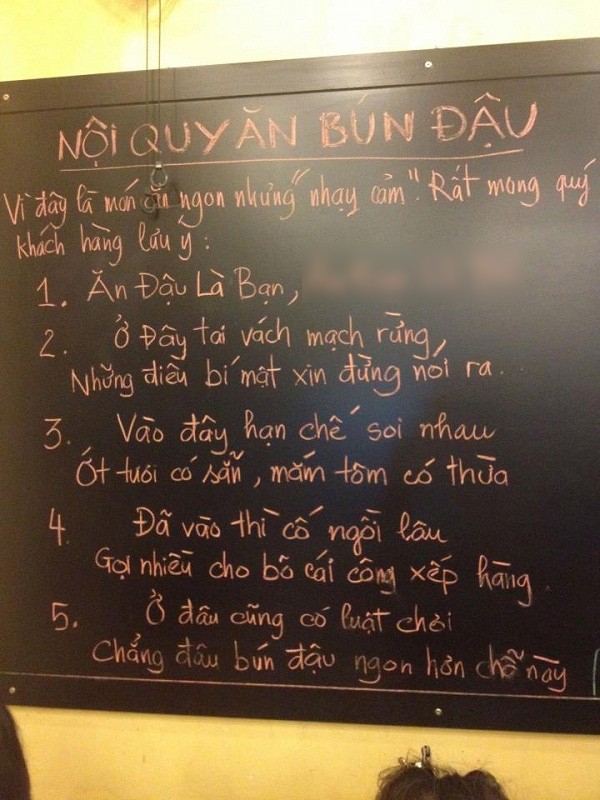 NỘI QUY ĂN BÚN ĐẬU
Vì đây là món ăn ngon nhưng "nhạy cảm". Rất mong quý
khách hàng lưu ý:
1. Ăn Đậu Là Bạn,
2. Ở Đây tai vách mạch rừng,
Những điều bí mật xin đừng nói ra...
3. Vào đây hạn chế soi nhau
Ớt tươi có sẵn, mắm tôm có thừa
4. Đã vào thì cố ngồi lâu
Gọi nhiều cho bõ cái công xếp hàng.
5. Ở đâu cũng có luật chơi
Chẳng đâu bún đậu ngon hơn chỗ này